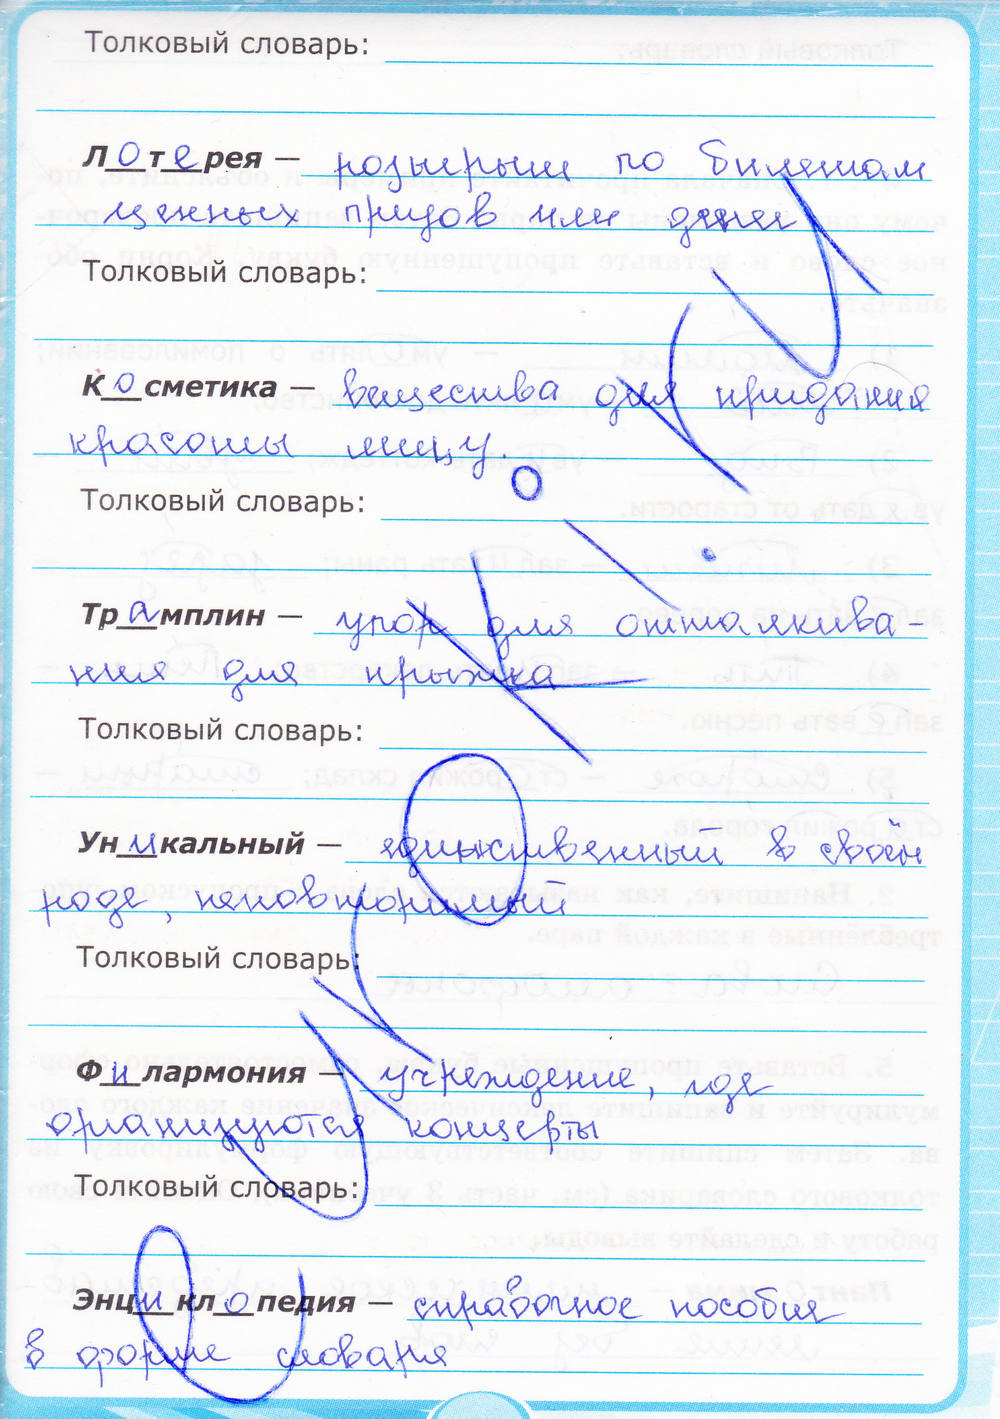 Толковый словарь:
Лотерея — розыгрыш по билетам
ценных призов или денег
Толковый словарь:
Косметика — вещества для придания
красоты лицу.
Толковый словарь:
Трамплин — упор для отталкива-
ния для прыжка
Толковый словарь:
Уникальный — единственный в своём
роде, неповторимый
Толковый словарь:
Филармония — учреждение, где
организуются концерты
Толковый словарь:
Энциклопедия — справочное пособие
в форме словаря